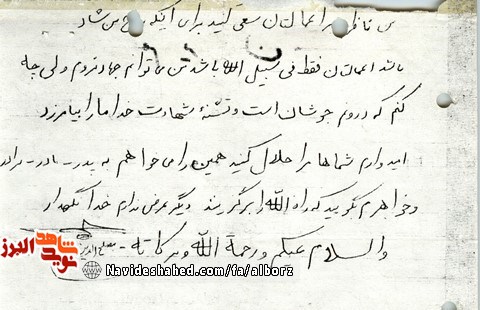 من ناظر بر اعمالتان سعی کنید برای اینکه روح من شاد
باشد اعمالتان فقط فی سبیل الله باشد من می توانم جهاد نروم ولی چه
کنم که درونم جوشان است و تشنه شهادت خدا ما را بیامرزد
امیدوارم شماها مرا حلال کنید همین را می خواهم به پدر - مادر - برادر
و خواهرم بگویید که راه الله را برگزینند دیگر عرضی ندارم خدا نگهدار
والسلام علیکم و رحمة الله و برکاته -
شاهد
نوید
البرز
Navideshahed.com/fa/alborz